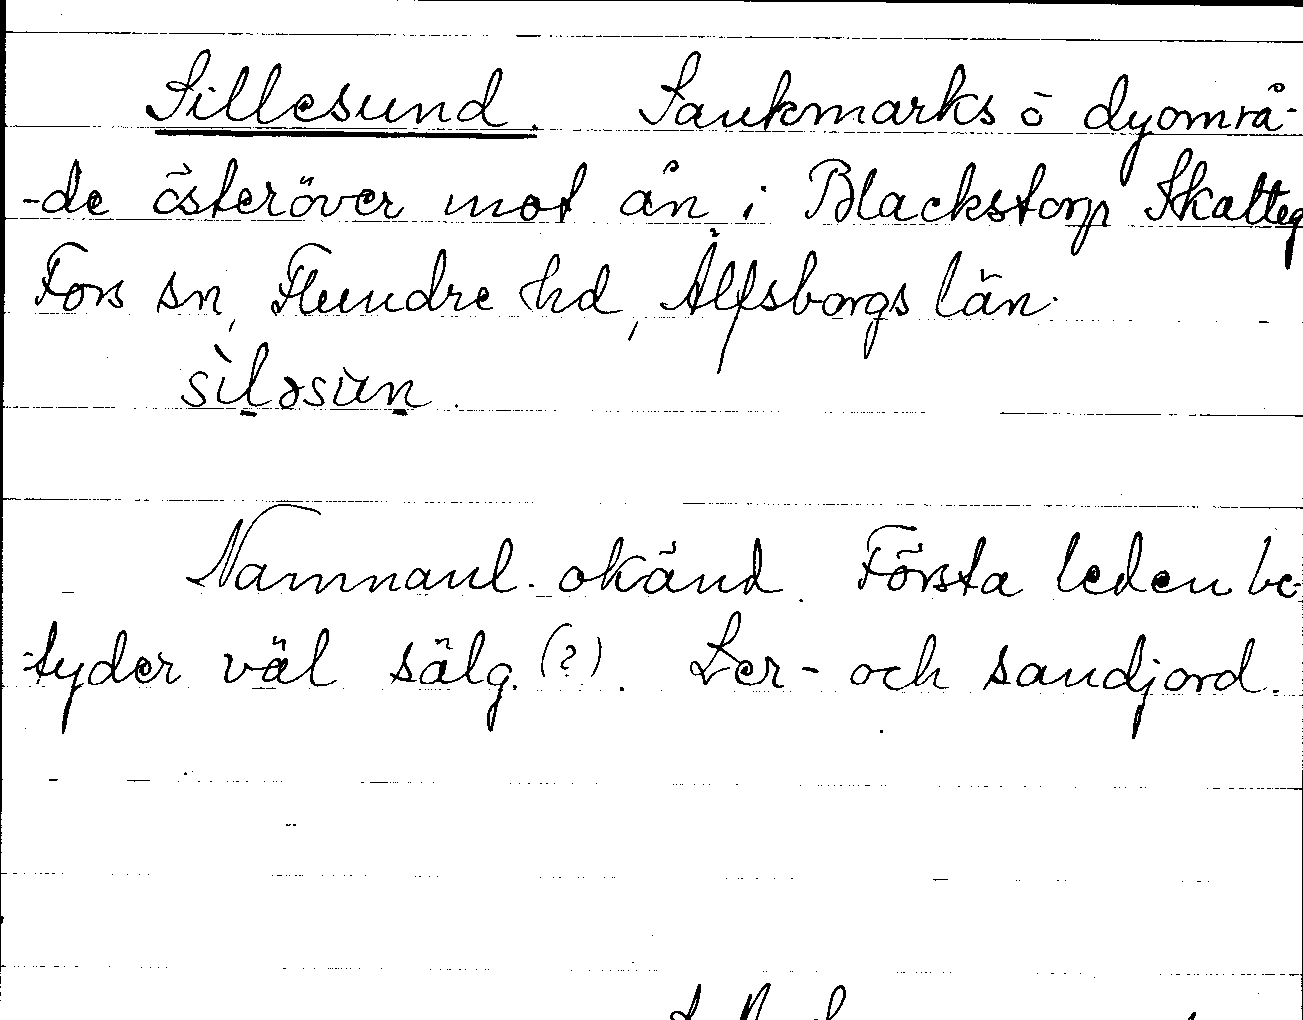 Sillesund. Sankmarks ö dyområ-
-de österöver mot ån i Blackstorp Skatteg
Fors sn, Flundre hd, Älfsborgs län.
sìl̠əsùn̠.
Namnanl. okänd. Första leden be-
-tyder väl sälg. (?). Ler- och sandjord.